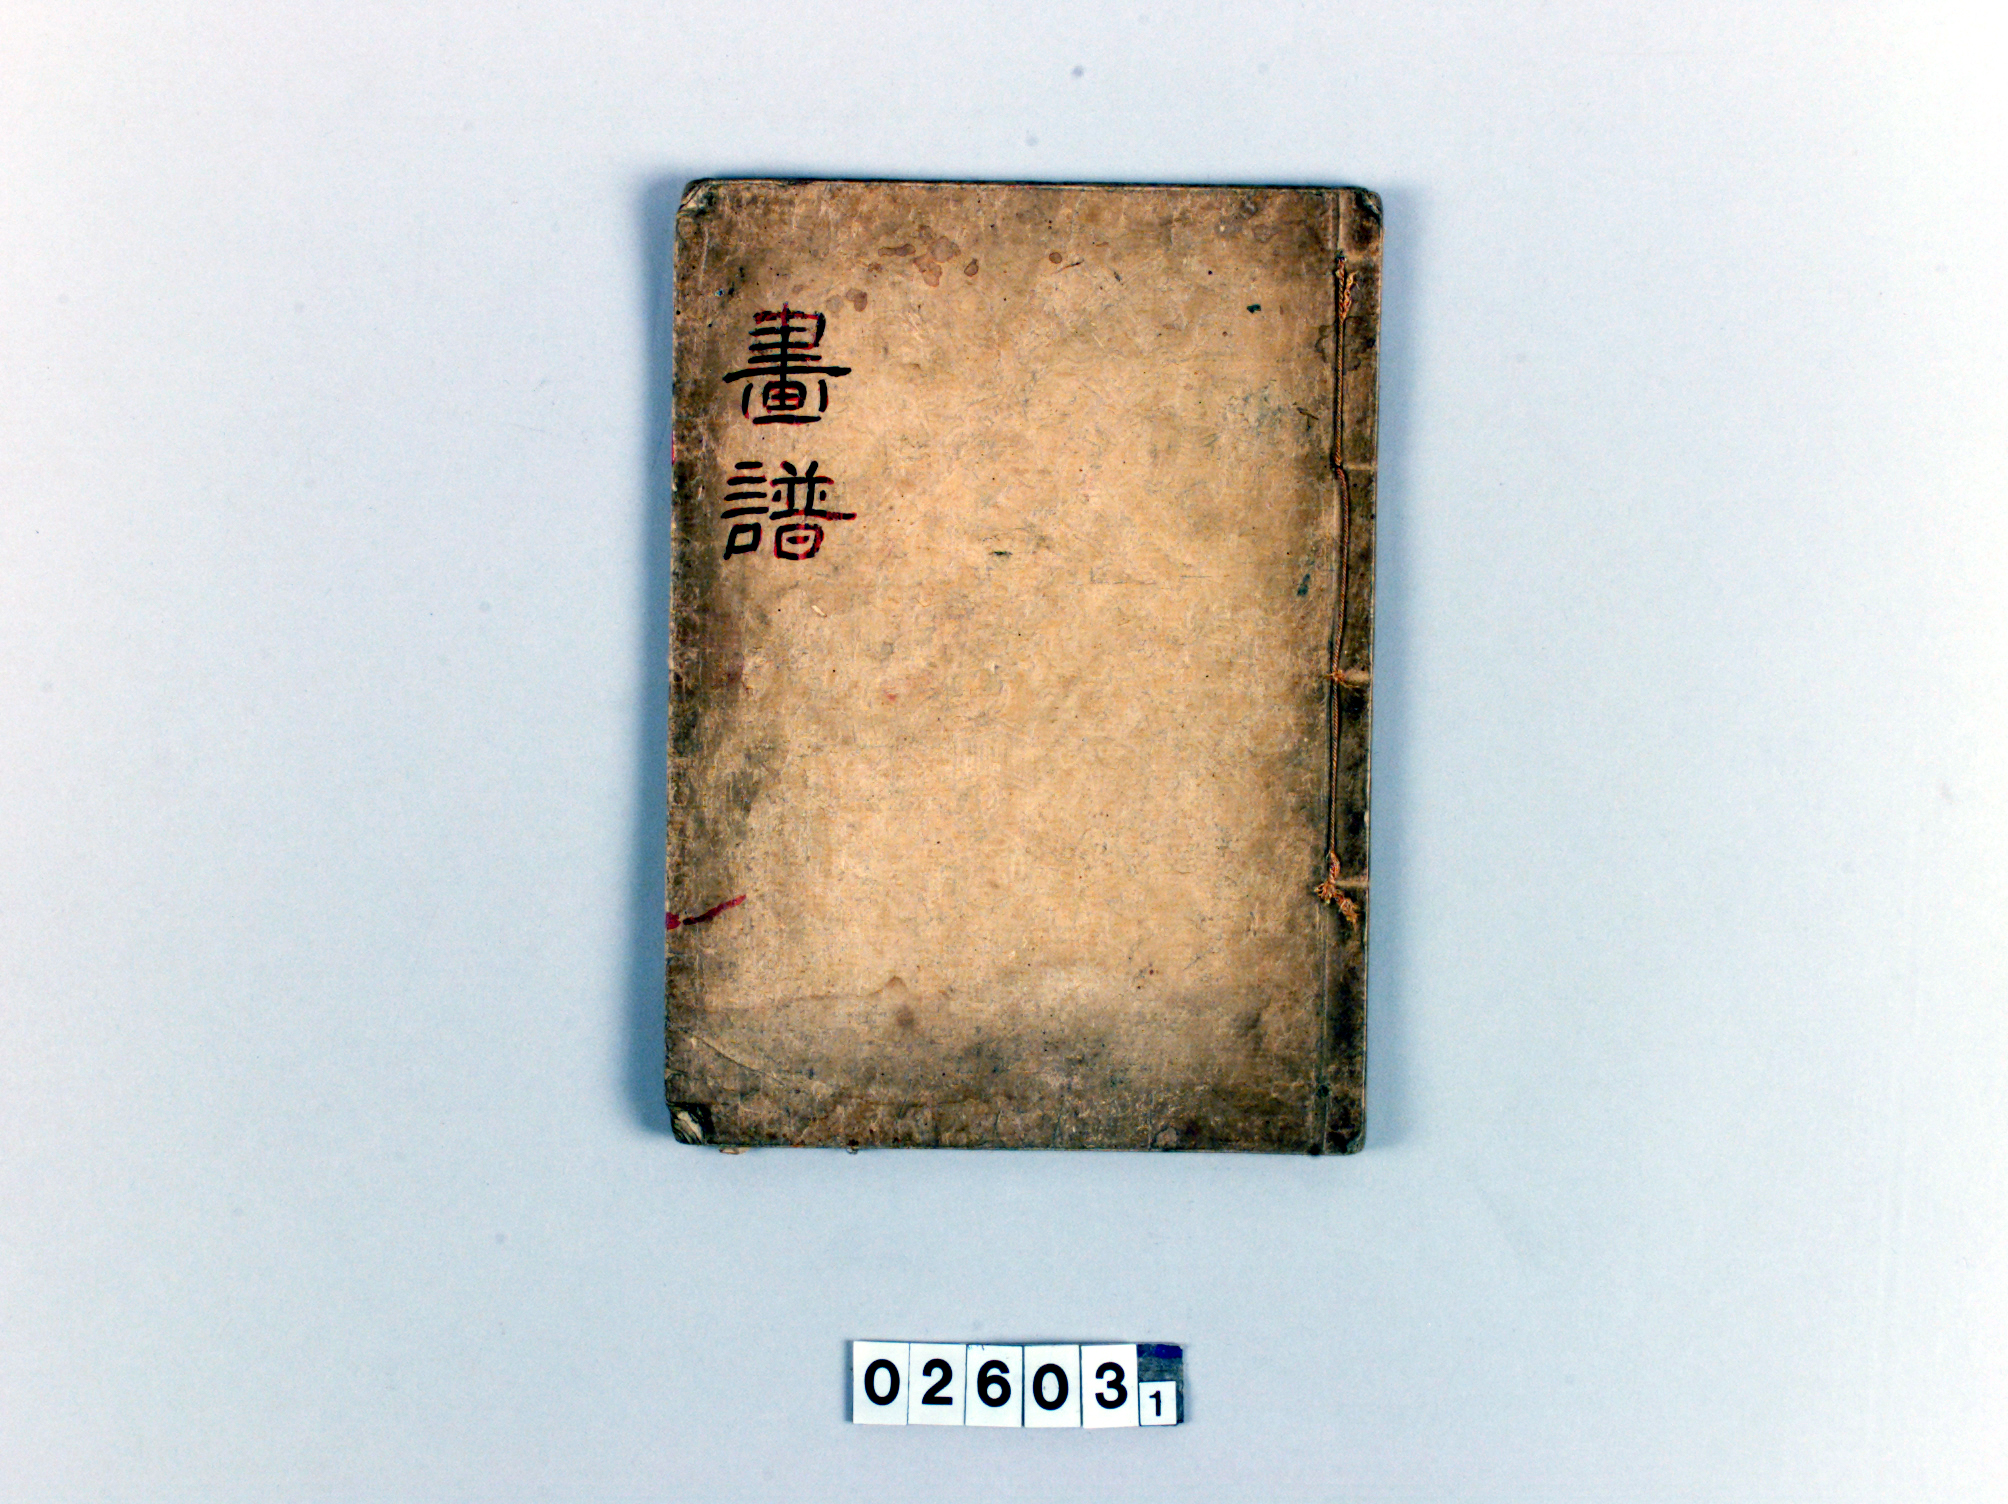 畫譜
02603 1